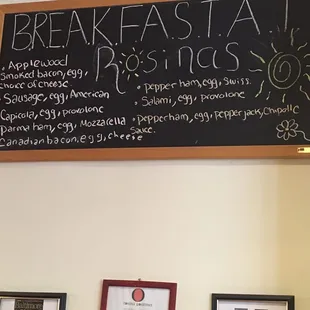 BREAKFAST A!
Rosinas
• Applewood
Smoked bacon, egg,
choice of cheese
• Sausage, egg, American
Capicola, egg, provolone
Parma ham, egg, Mozzarella
Canadian bacon, egg, cheese
• pepper ham, egg, Swiss.
• Salami, egg, provolone
• pepperham, egg, pepperjack, Chipotle
sauce.